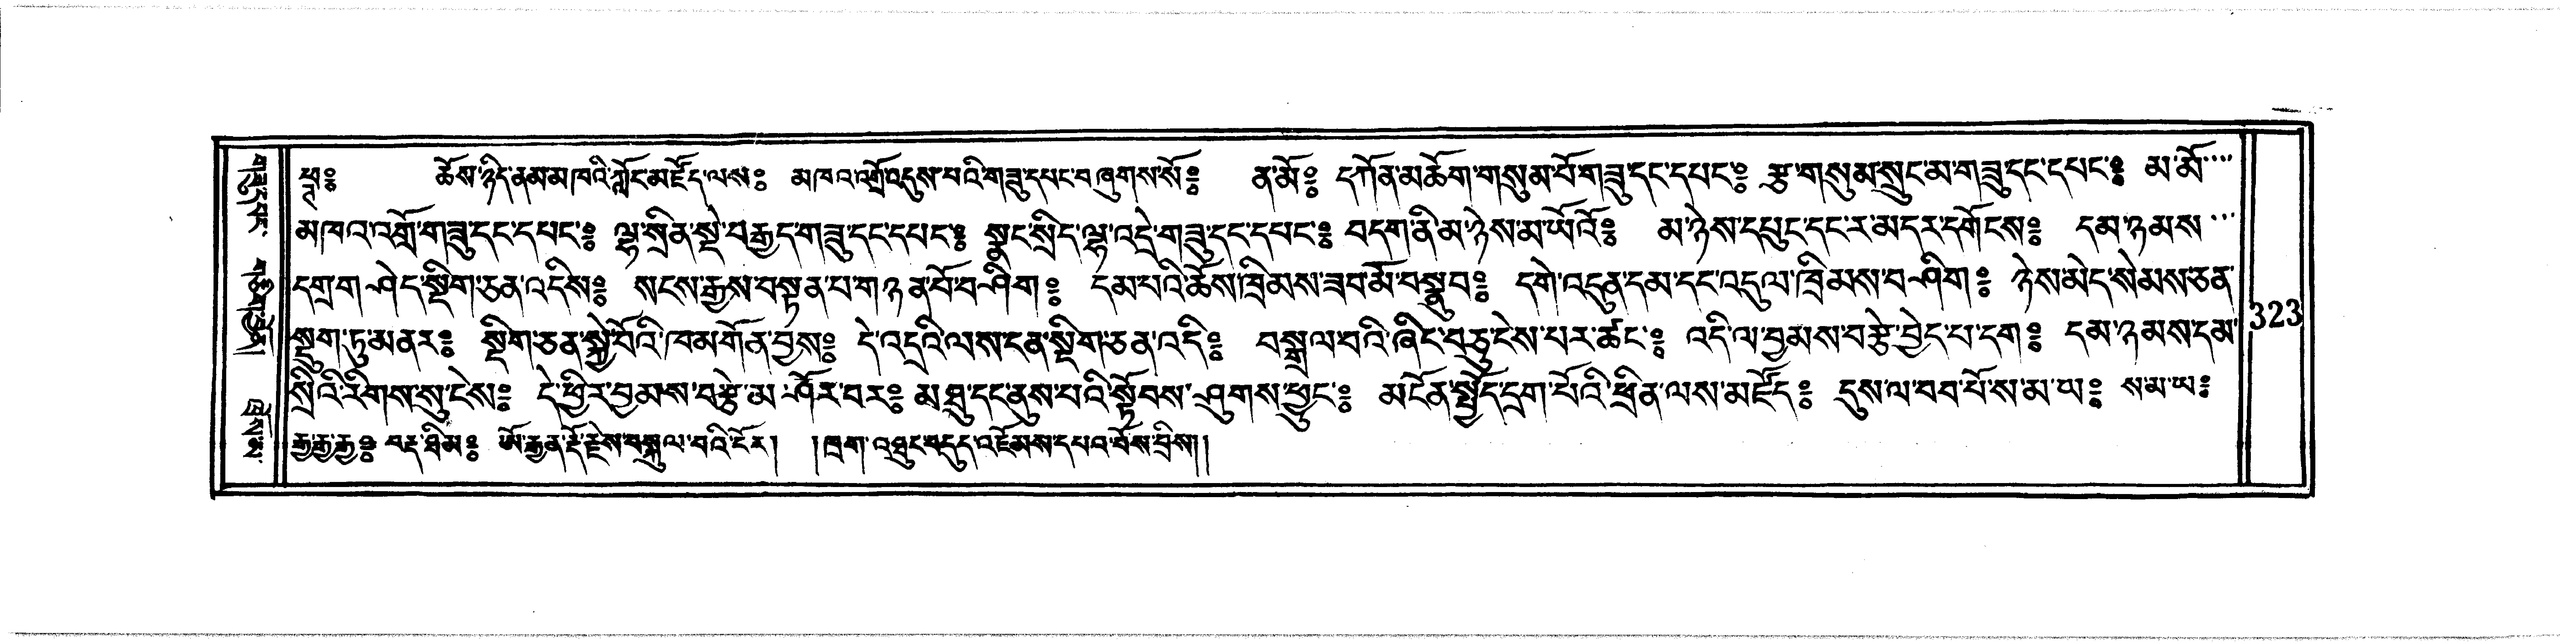 ༄༔ ཆོས་ཉིད་ནམ་མཁའི་ཀློང་མཛོད་ལས༔ མཁའ་འགྲོ་འདུས་པའི་གཟུ་དཔང་བཞུགས་སོ༔ ན་མོ༔ དཀོན་མཆོག་གསུམ་པོ་གཟུ་དང་དཔང་༔ རྩ་གསུམ་སྲུང་མ་གཟུ་དང་དཔང་༔ མ་མོ་
མཁའ་འགྲོ་གཟུ་དང་དཔང་༔ ལྷ་སྲིན་སྡེ་བརྒྱད་གཟུ་དང་དཔང་༔ སྣང་སྲིད་ལྷ་འདྲེ་གཟུ་དང་དཔང་༔ བདག་ནི་མ་ཉེས་མ་ཡོའོ༔ མ་ཉེས་དཔུང་དང་ར་མདར་དགོངས༔ དམ་ཉམས་
དགྲ་གཤེད་སྡིག་ཅན་འདིས༔ སངས་རྒྱས་བསྟན་པ་གཉན་པོ་བཤིག༔ དམ་པའི་ཆོས་ཁྲིམས་ཟབ་མོ་བསྣུབ༔ དགེ་འདུན་དམ་དང་འདུལ་ཁྲིམས་བཤིག༔ ཉེས་མེད་སེམས་ཅན་
སྡུག་ཏུ་མནར༔ སྡིག་ཅན་སྐྱེ་བོའི་ཁམ་གོན་བྱས༔ དེ་འདྲའི་ལས་ངན་སྡིག་ཅན་འདི༔ བསྒྲལ་བའི་ཞིང་བཅུ་ངེས་པར་ཚང་༔ འདི་ལ་བྱམས་བརྩེ་བྱེད་པ་དག༔ དམ་ཉམས་དམ་
སྲིའི་རིགས་སུ་ངེས༔ དེ་ཕྱིར་བྱམས་བརྩེ་མ་ཤོར་བར༔ མཐུ་དང་ནུས་པའི་སྟོབས་ཤུགས་ཕྱུང་༔ མངོན་སྤྱོད་དྲག་པོའི་ཕྲིན་ལས་མཛོད༔ དུས་ལ་བབ་པོ་ས་མ་ཡ༔ ས་མ་ཡ༔
རྒྱ་རྒྱ་རྒྱ༔ བརྡ་ཐིམ༔ ཨོ་རྒྱན་རྡོ་རྗེས་བསྐུལ་བའི་ངོར། །ཁྲག་འཐུང་བདུད་འཇོམས་དཔའ་བོས་བྲིས།།
323